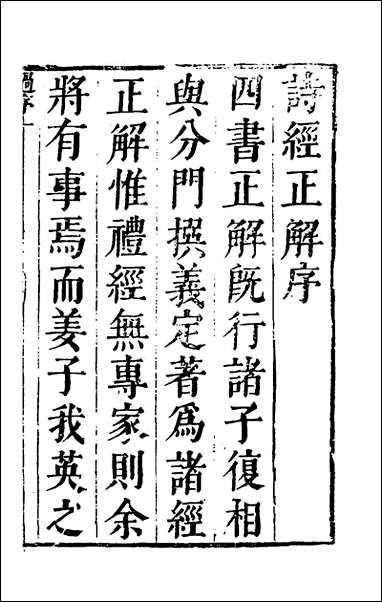 詩經正解序
四書正解旣行諸子復相
與分門撰義定著爲諸經
正解惟禮經無專家則余
將有事焉而姜子我英之